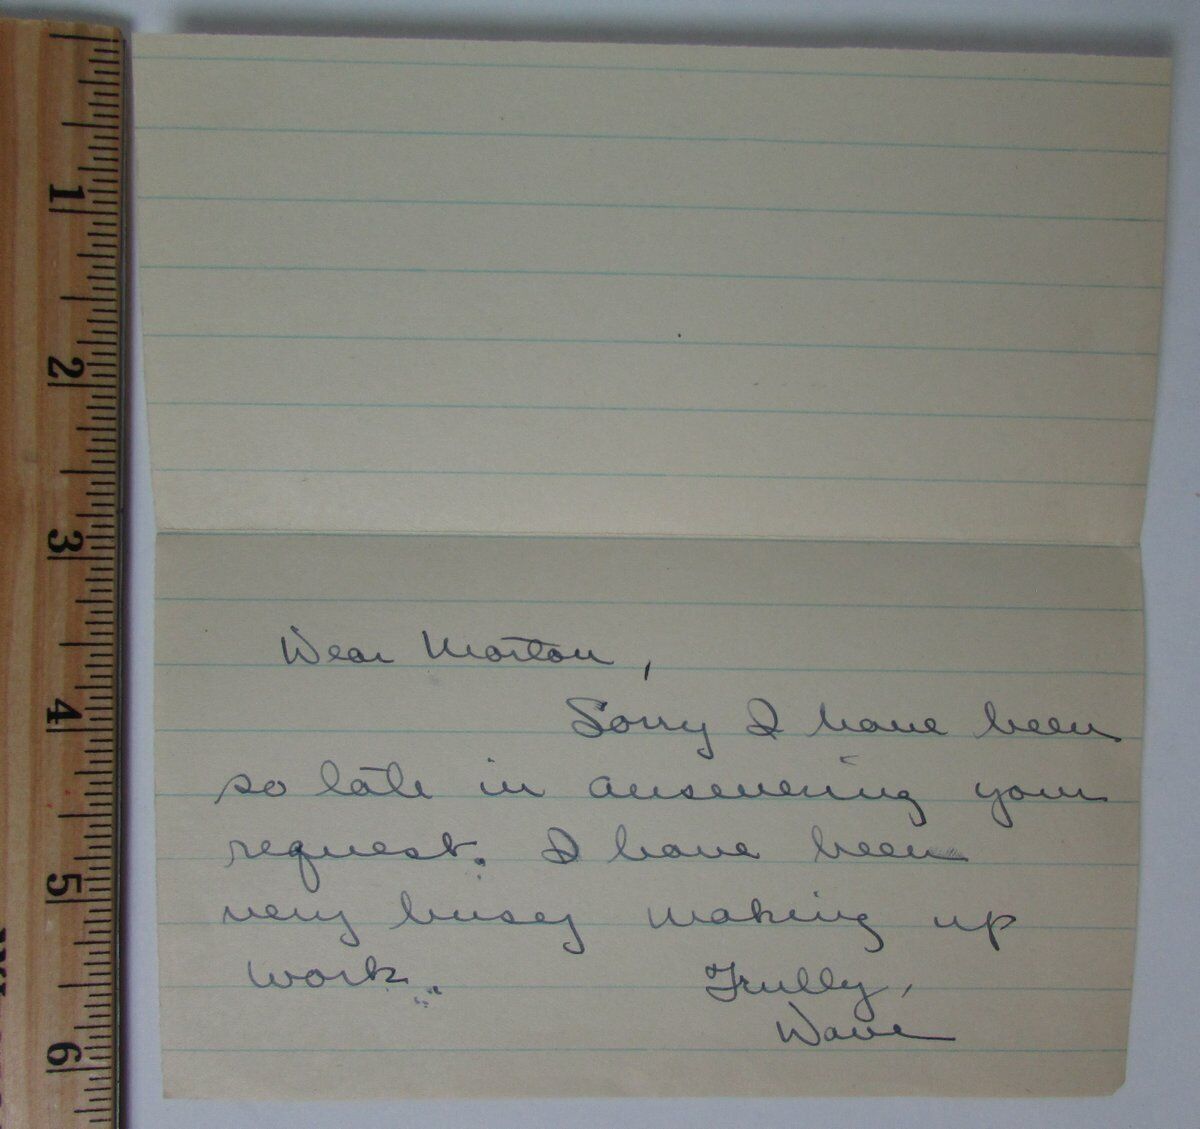 1
2
3
4
5
6
Dear Morton,
Sorry I have been
so late in ansewering your
request. I have been
very buisey making up
work.
Trully,
Dave